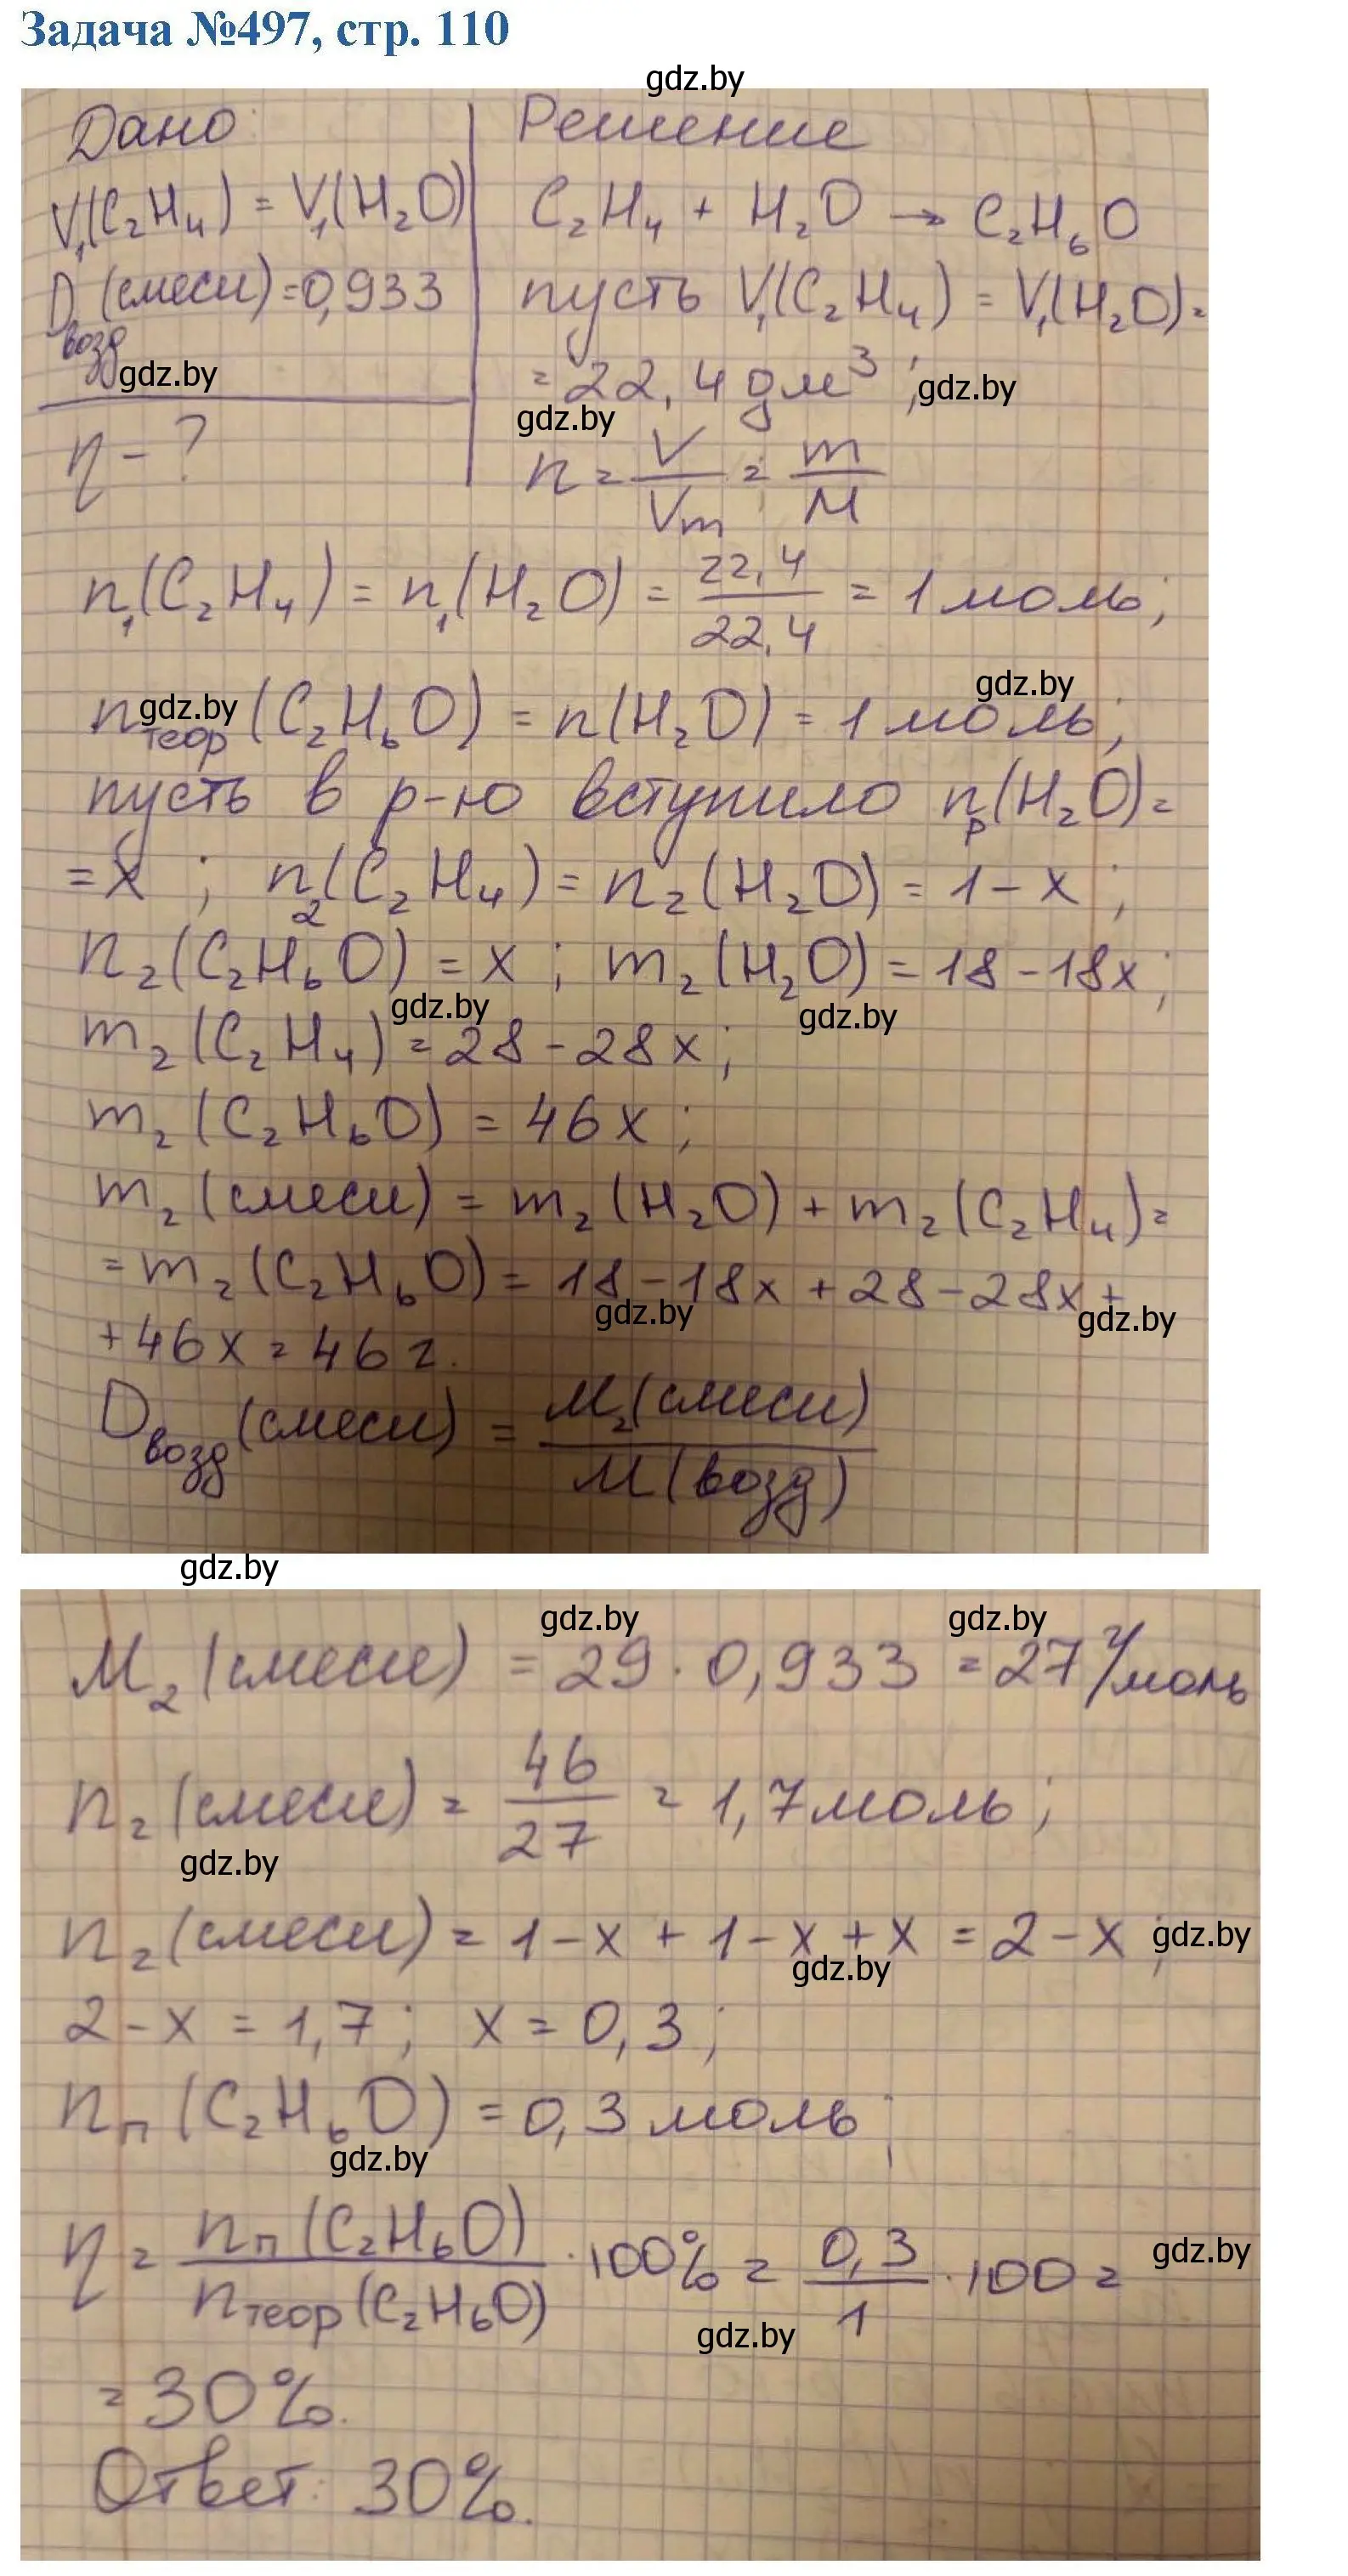 Задача №497, стр. 110
gdz.by
Дано: Решение
V₁(C₂H₄) = V₁(H₂O) C₂H₄ + H₂O → C₂H₆O
D возд (смеси) = 0,933 пусть V₁(C₂H₄) = V₁(H₂O) =
gdz.by = 22,4 дм³; gdz.by
gdz.by
η - ? n = V/Vm = m/M
n₁(C₂H₄) = n₁(H₂O) = 22,4/22,4 = 1 моль;
gdz.by
n теор gdz.by (C₂H₆O) = n(H₂O) = 1 моль;
пусть в р-ю вступило nр(H₂O) =
= x ; n₂(C₂H₄) = n₂(H₂O) = 1 - x ;
n₂(C₂H₆O) = x ; m₂(H₂O) = 18 - 18x;
gdz.by gdz.by
m₂(C₂H₄) = 28 - 28x;
m₂(C₂H₆O) = 46x ;
m₂(смеси) = m₂(H₂O) + m₂(C₂H₄) =
= m₂(C₂H₆O) = 18 - 18x + 28 - 28x +
gdz.by gdz.by
+ 46x = 46 г.
D возд (смеси) = M₂(смеси)/M(возд)
gdz.by
gdz.by gdz.by
M₂(смеси) = 29 · 0,933 = 27 г/моль
n₂(смеси) = 46/27 = 1,7 моль;
gdz.by
n₂(смеси) = 1 - x + 1 - x + x = 2 - x ; gdz.by
gdz.by
2 - x = 1,7; x = 0,3;
nп(C₂H₆O) = 0,3 моль;
gdz.by
η = nп(C₂H₆O)/nтеор(C₂H₆O) · 100% = 0,3/1 · 100 = gdz.by
gdz.by
= 30%.
Ответ: 30%.